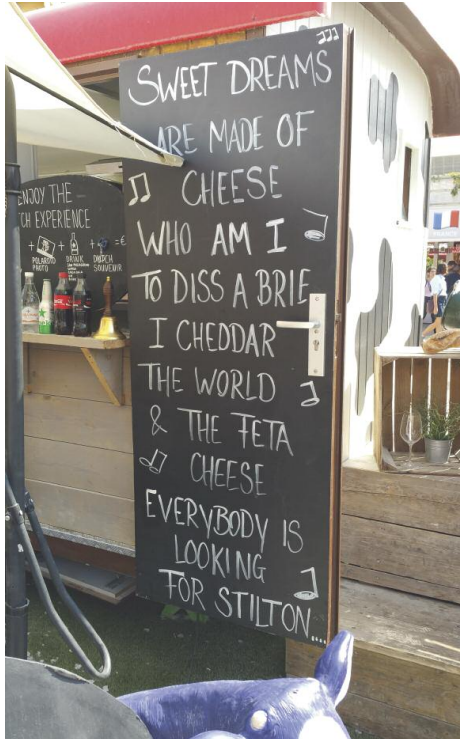 SWEET DREAMS
ARE MADE OF
CHEESE
WHO AM I
TO DISS A BRIE
I CHEDDAR
THE WORLD
& THE FETA
CHEESE
EVERYBODY IS
LOOKING
FOR STILTON....
ENJOY THE
CH EXPERIENCE
+ + + = €
POLAROID PHOTO
DRINK
DUTCH SOUVENIR